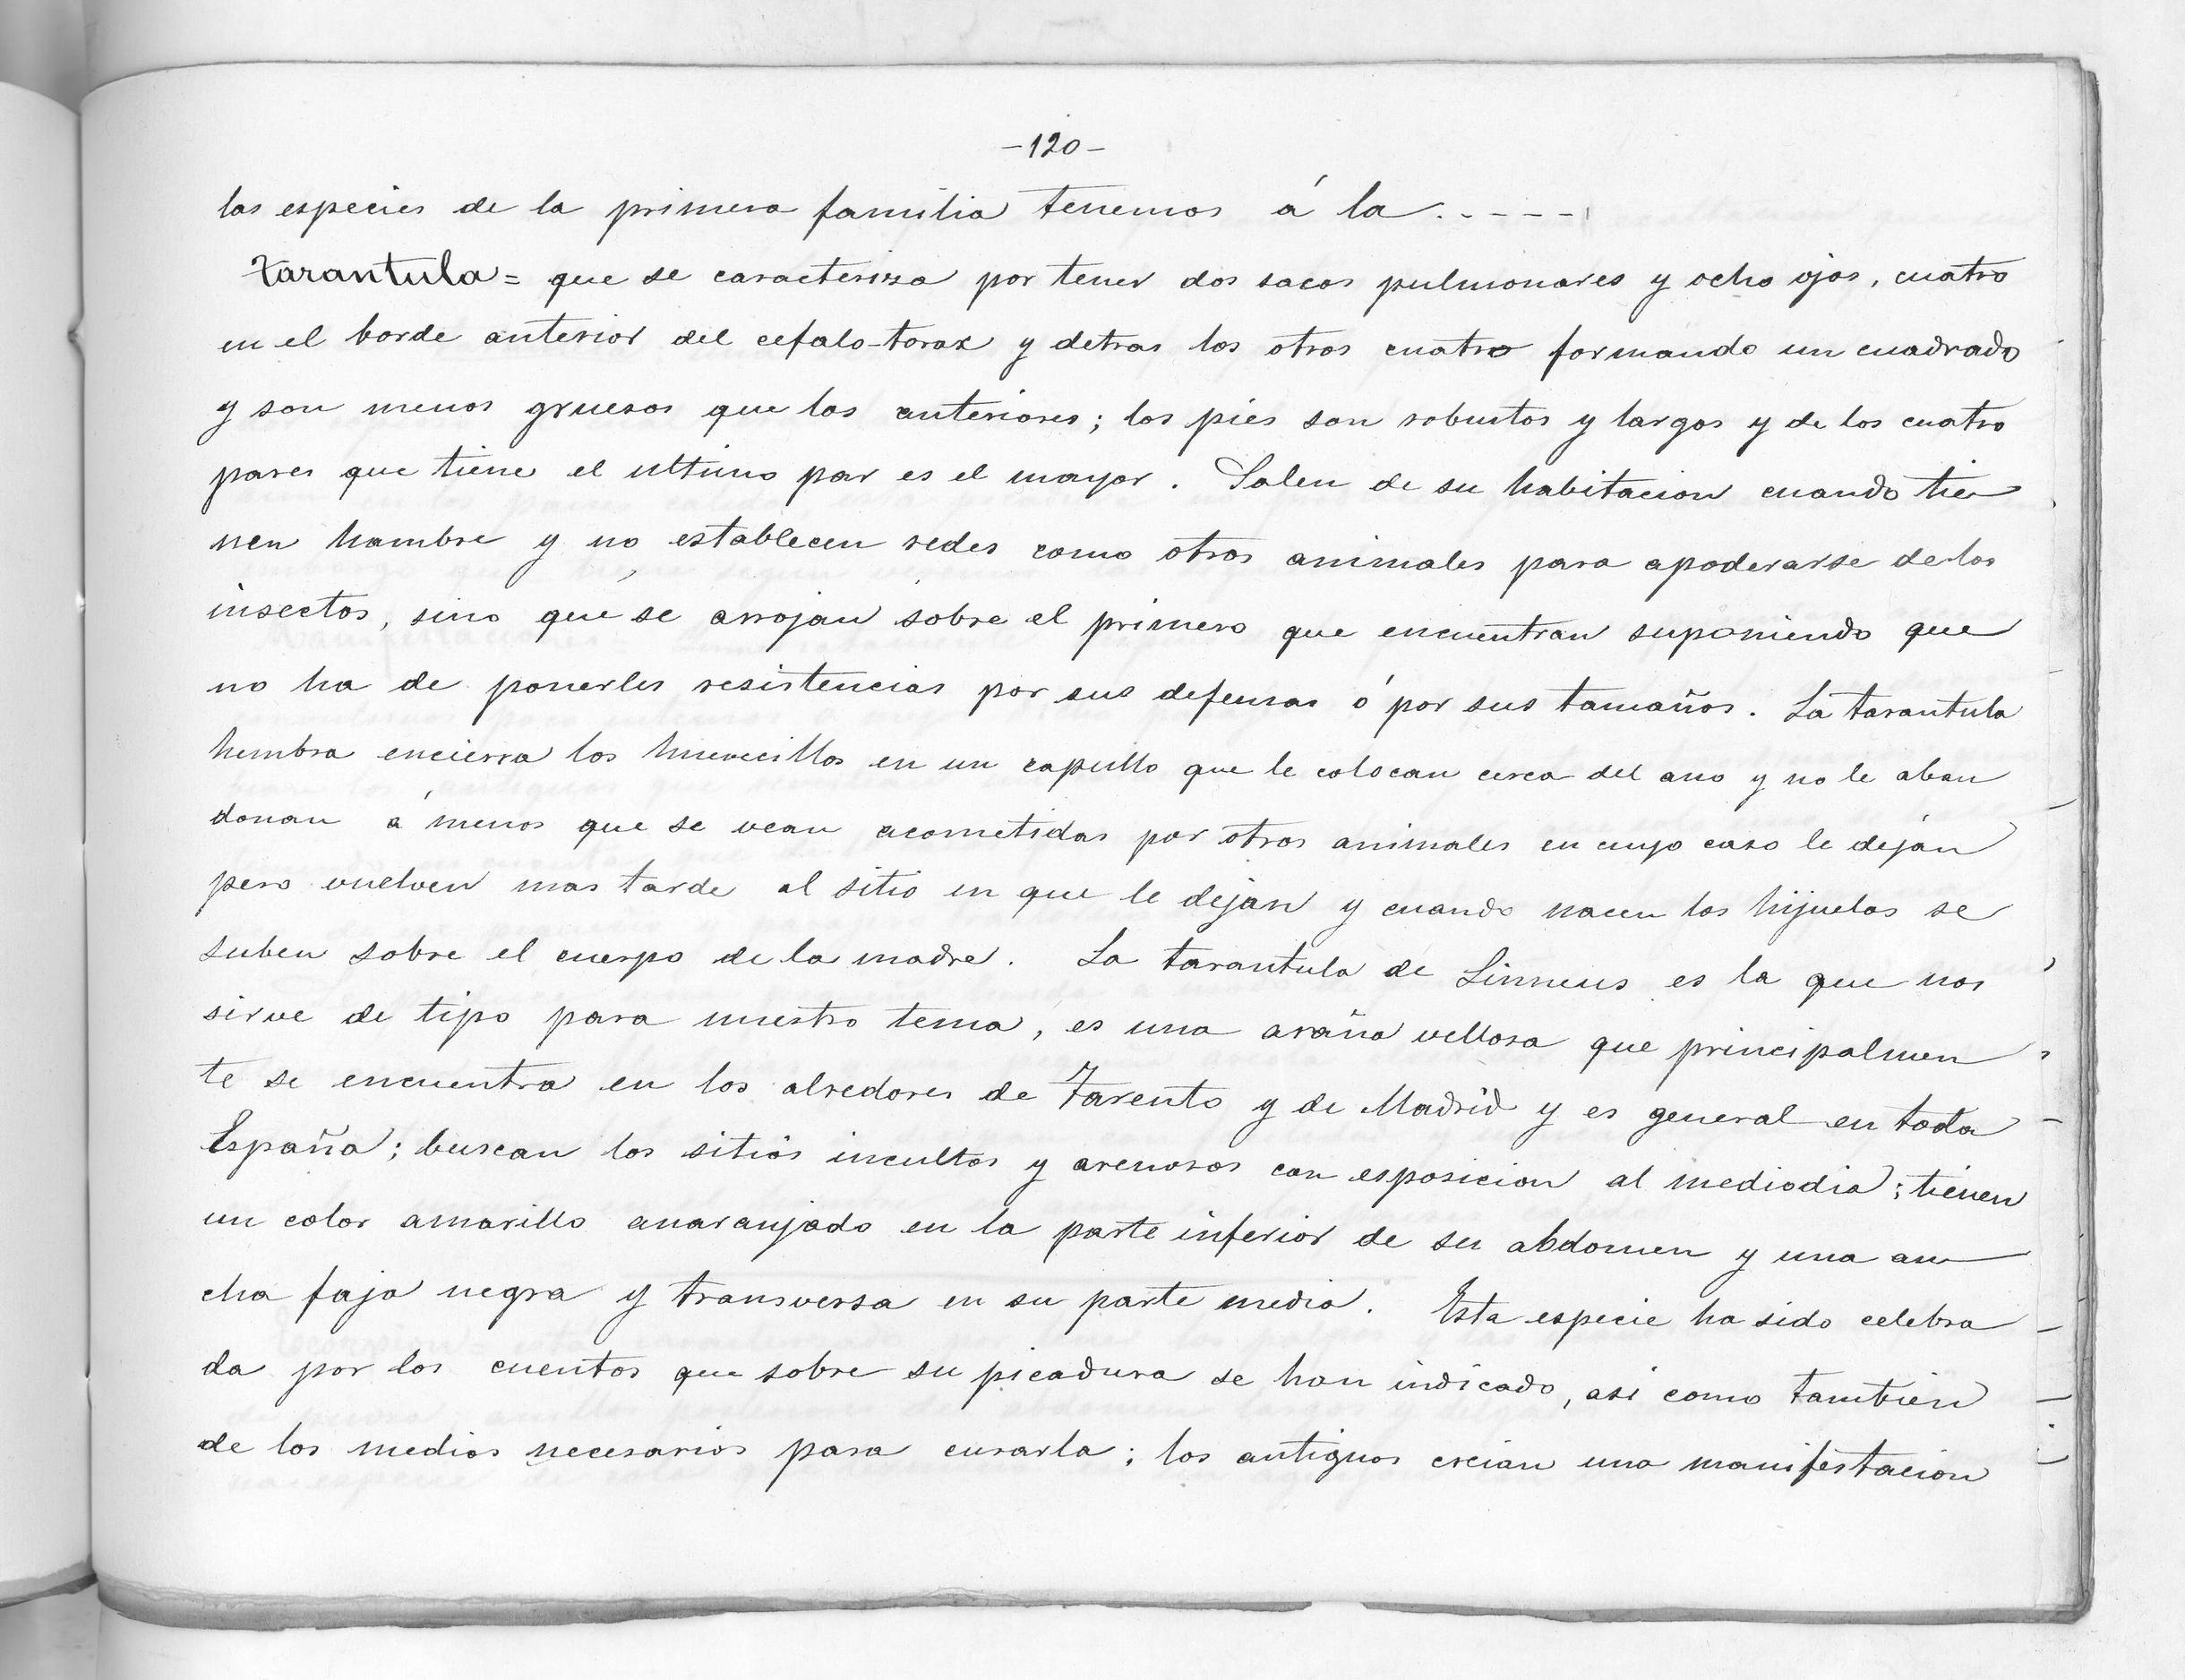 -120-
las especies de la primera familia tenemos á la.-----
Tarantula = que se caracteriza por tener dos sacos pulmonares y ocho ojos, cuatro
en el borde anterior del cefalo-torax y detras los otros cuatro formando un cuadrado
y son menos gruesos que los anteriores; los pies son robustos y largos y de los cuatro
pares que tiene el ultimo par es el mayor. Salen de su habitacion cuando tie
nen hambre y no establecen redes como otros animales para apoderarse de los
insectos, sino que se arrojan sobre el primero que encuentran suponiendo que
no ha de ponerles resistencias por sus defensas ó por sus tamaños. La tarantula
hembra encierra los huevecillos en un capullo que le colocan cerca del ano y no le aban
donan á menos que se vean acometidas por otros animales en cuyo caso le dejan
pero vuelven mas tarde al sitio en que le dejan y cuando nacen los hijuelos se
suben sobre el cuerpo de la madre. La tarantula de Linneus es la que nos
sirve de tipo para nuestro tema, es una araña vellosa que principalmen
te se encuentra en los alredores de Tarento y de Madrid y es general en toda
España; buscan los sitios incultos y arenosos con esposicion al mediodia; tienen
un color amarillo anaranjado en la parte inferior de su abdomen y una an
cha faja negra y transversa en su parte media. Esta especie ha sido celebra
da por los cuentos que sobre su picadura se han indicado, asi como tambien
de los medios necesarios para curarla; los antiguos creian una manifestacion